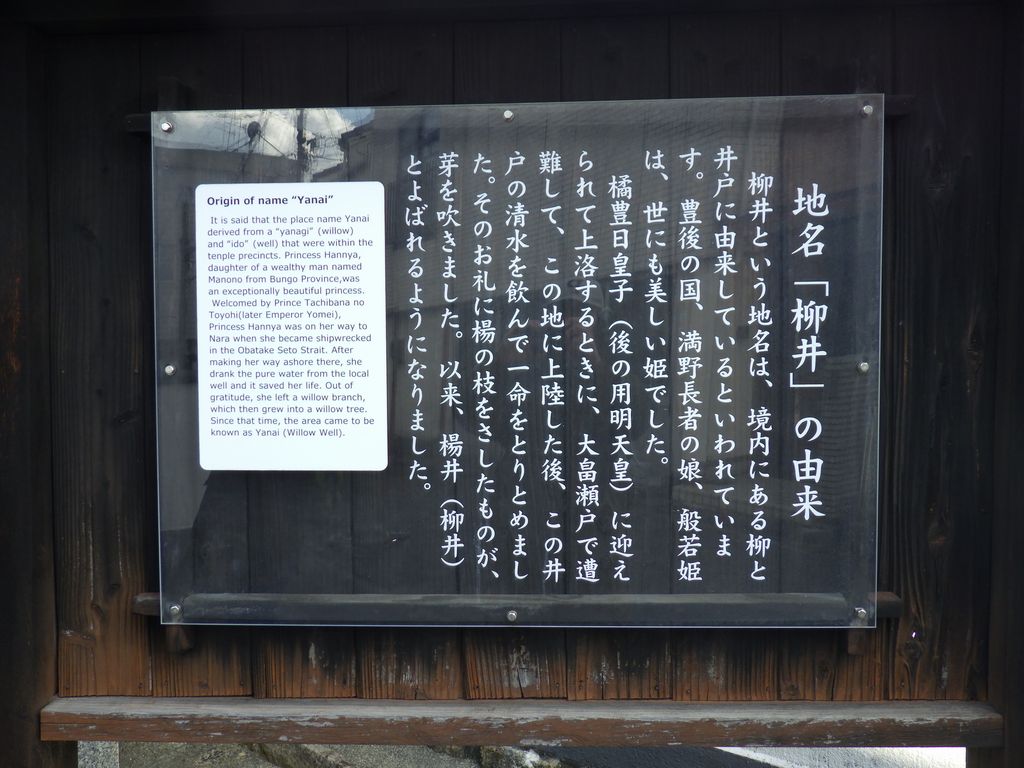 地名「柳井」の由来
柳井という地名は、境内にある柳と
井戸に由来しているといわれていま
す。豊後の国、満野長者の娘、般若姫
は、世にも美しい姫でした。
橘豊日皇子（後の用明天皇）に迎え
られて上洛するときに、大畠瀬戸で遭
難して、この地に上陸した後、この井
戸の清水を飲んで一命をとりとめまし
た。そのお礼に楊の枝をさしたものが、
芽を吹きました。以来、楊井（柳井）
とよばれるようになりました。
Origin of name "Yanai"
It is said that the place name Yanai
derived from a "yanagi" (willow)
and "ido" (well) that were within the
tenple precincts. Princess Hannya,
daughter of a wealthy man named
Manono from Bungo Province,was
an exceptionally beautiful princess.
Welcomed by Prince Tachibana no
Toyohi(later Emperor Yomei),
Princess Hannya was on her way to
Nara when she became shipwrecked
in the Obatake Seto Strait. After
making her way ashore there, she
drank the pure water from the local
well and it saved her life. Out of
gratitude, she left a willow branch,
which then grew into a willow tree.
Since that time, the area came to be
known as Yanai (Willow Well).